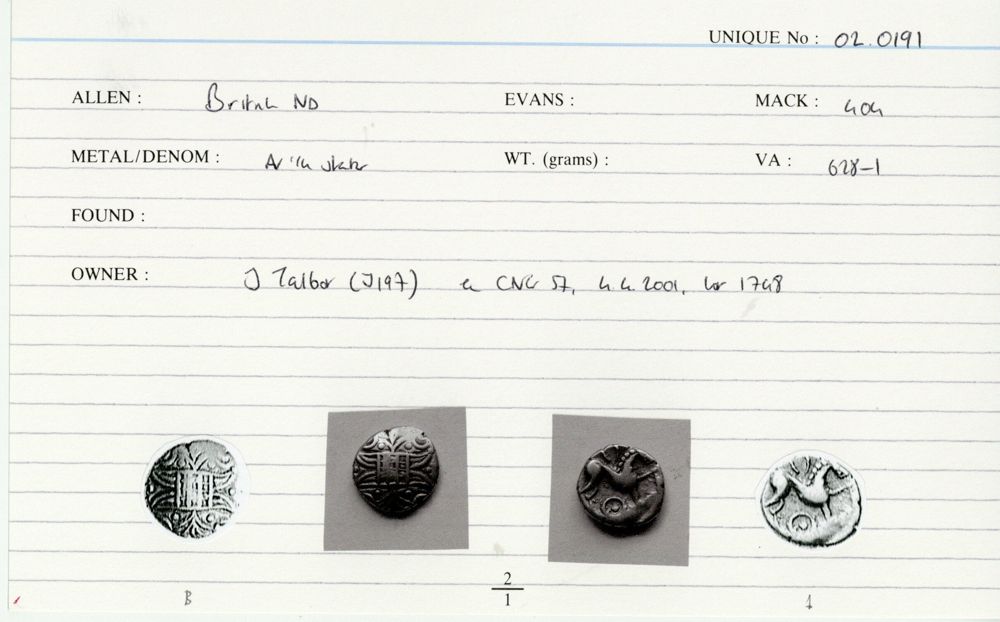 UNIQUE No : 02.0191
ALLEN : British ND EVANS : MACK : 404
METAL/DENOM : AV 1/4 stater WT. (grams) : VA : 628-1
FOUND :
OWNER : J Talbot (J197) ex CNG 57, 4.4.2001, lot 1748
2
1
B 1